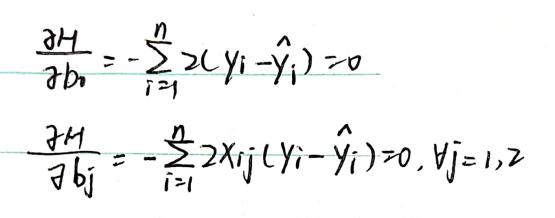 ∂M/∂b₀ = -∑ᵢ₌₁ⁿ 2(yᵢ - ŷᵢ) = 0
∂M/∂bⱼ = -∑ᵢ₌₁ⁿ 2xᵢⱼ(yᵢ - ŷᵢ) = 0, ∀j = 1, 2